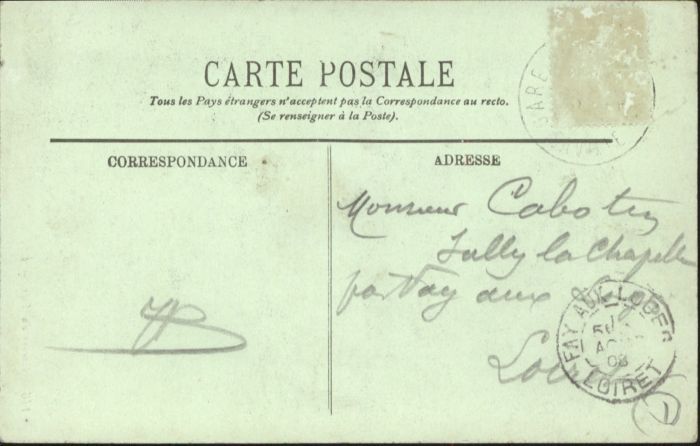 CARTE POSTALE
Tous les Pays étrangers n'acceptent pas la Correspondance au recto.
(Se renseigner à la Poste).
CORRESPONDANCE
ADRESSE
Monsieur
Sully la Chapelle
par Fay aux Loges
Loiret
GARE
FAY-AUX-LOGES
AOUT
08
LOIRET